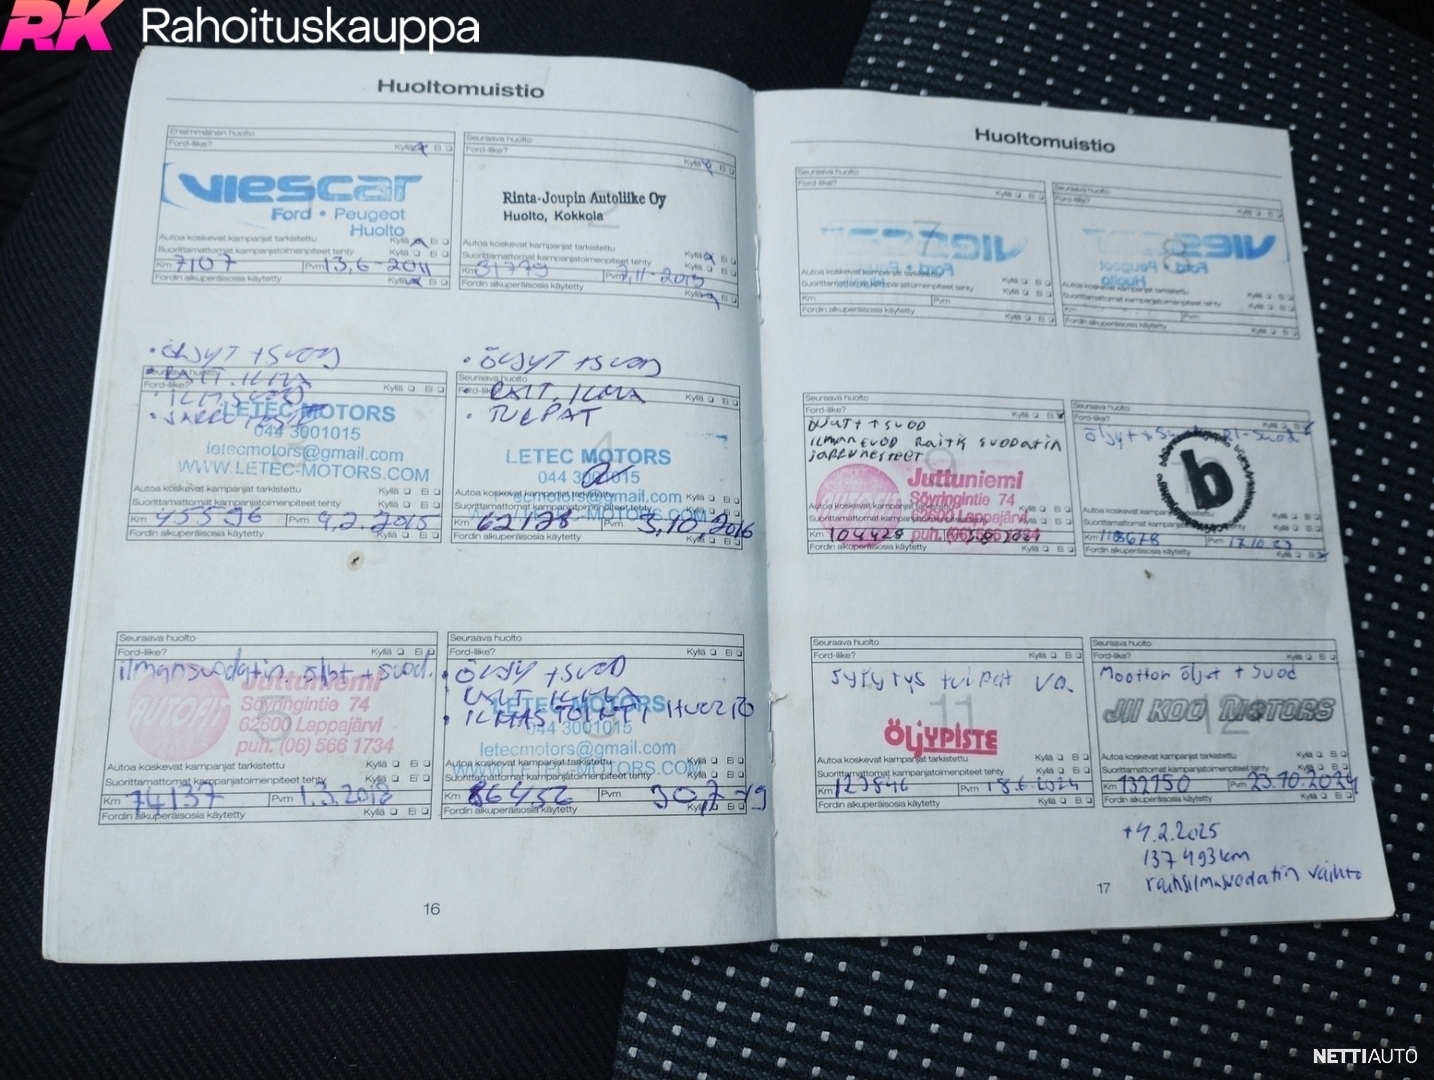 RK Rahoituskauppa
Huoltomuistio
Ensimmäinen huolto
Ford-liike?
Kyllä Ei
viescar
Ford • Peugeot
Huolto
Autoa koskevat kampanjat tarkistettu
Kyllä Ei
Suorittamattomat kampanjatoimenpiteet tehty
Kyllä Ei
Km 7107 Pvm 13.6-2011
Fordin alkuperäisosia käytetty
Seuraava huolto
Ford-liike?
Kyllä Ei
2
Rinta-Joupin Autoliike Oy
Huolto, Kokkola
Autoa koskevat kampanjat tarkistettu
Kyllä Ei
Suorittamattomat kampanjatoimenpiteet tehty
Km 31779 Pvm 7.11-2013
Fordin alkuperäisosia käytetty
Kyllä Ei
• ÖLJYT + SUOD
• RAIT. ILMA
Seuraava huolto
Ford-liike?
Kyllä Ei
LETEC MOTORS
044 3001015
letecmotors@gmail.com
WWW.LETEC-MOTORS.COM
Autoa koskevat kampanjat tarkistettu
Kyllä Ei
Suorittamattomat kampanjatoimenpiteet tehty
Kyllä Ei
Km 45596 Pvm 9.2.2015
Fordin alkuperäisosia käytetty
Kyllä Ei
• ÖLJYT + SUOD
• RAIT. ILMA
• TULPAT
Seuraava huolto
Ford-liike?
Kyllä Ei
4
LETEC MOTORS
044 3001015
Autoa koskevat kampanjat tarkistettu
Kyllä Ei
Suorittamattomat kampanjatoimenpiteet tehty
Km 62128 Pvm 3.10.2016
Fordin alkuperäisosia käytetty
Kyllä Ei
Seuraava huolto
Ford-liike?
Kyllä Ei
ilmansuodatin. öljyt + suod.
5
AUTOFIT
Juttuniemi
Söyringintie 74
62600 Lappajärvi
puh. (06) 566 1734
Autoa koskevat kampanjat tarkistettu
Kyllä Ei
Suorittamattomat kampanjatoimenpiteet tehty
Kyllä Ei
Km 74137 Pvm 1.3.2018
Fordin alkuperäisosia käytetty
Kyllä Ei
Seuraava huolto
Ford-liike?
Kyllä Ei
• ÖLJY + SUOD
• RAIT ILMA
• ILMASTOINTI HUOLTO
LETEC MOTORS
044 3001015
letecmotors@gmail.com
WWW.LETEC-MOTORS.COM
Autoa koskevat kampanjat tarkistettu
Kyllä Ei
Suorittamattomat kampanjatoimenpiteet tehty
Km 86452 Pvm 30.7-19
Fordin alkuperäisosia käytetty
Kyllä Ei
16
Huoltomuistio
Seuraava huolto
Ford-liike?
Kyllä Ei
7
Autoa koskevat kampanjat tarkistettu
Kyllä Ei
Suorittamattomat kampanjatoimenpiteet tehty
Kyllä Ei
Km Pvm
Fordin alkuperäisosia käytetty
Kyllä Ei
Seuraava huolto
Ford-liike?
Kyllä Ei
8
Autoa koskevat kampanjat tarkistettu
Kyllä Ei
Suorittamattomat kampanjatoimenpiteet tehty
Kyllä Ei
Km Pvm
Fordin alkuperäisosia käytetty
Kyllä Ei
Seuraava huolto
Ford-liike?
Kyllä Ei
öljyt + suod
ilmansuod raitis suodatin
jarrunesteet
9
AUTOFIT
Juttuniemi
Söyringintie 74
62600 Lappajärvi
puh. (06) 566
Autoa koskevat kampanjat tarkistettu
Suorittamattomat kampanjatoimenpiteet tehty
Kyllä Ei
Km 104428
Fordin alkuperäisosia käytetty
Kyllä Ei
Seuraava huolto
Ford-liike?
Kyllä Ei
b
Autoa koskevat kampanjat tarkistettu
Suorittamattomat kampanjatoimenpiteet tehty
Kyllä Ei
Km Pvm
Fordin alkuperäisosia käytetty
Kyllä Ei
Seuraava huolto
Ford-liike?
Kyllä Ei
sytytys tulpat
11
ÖLJYPISTE
Autoa koskevat kampanjat tarkistettu
Kyllä Ei
Suorittamattomat kampanjatoimenpiteet tehty
Kyllä Ei
Km 123846 Pvm
Fordin alkuperäisosia käytetty
Kyllä Ei
Seuraava huolto
Ford-liike?
Kyllä Ei
Moottori öljyt + suod
12
JII KOO MOTORS
Autoa koskevat kampanjat tarkistettu
Kyllä Ei
Suorittamattomat kampanjatoimenpiteet tehty
Km 132750 Pvm 23.10.2024
Fordin alkuperäisosia käytetty
Kyllä Ei
+4.2.2025
137 493km
raitisilmasuodatin vaihto
17
NETTIAUTO